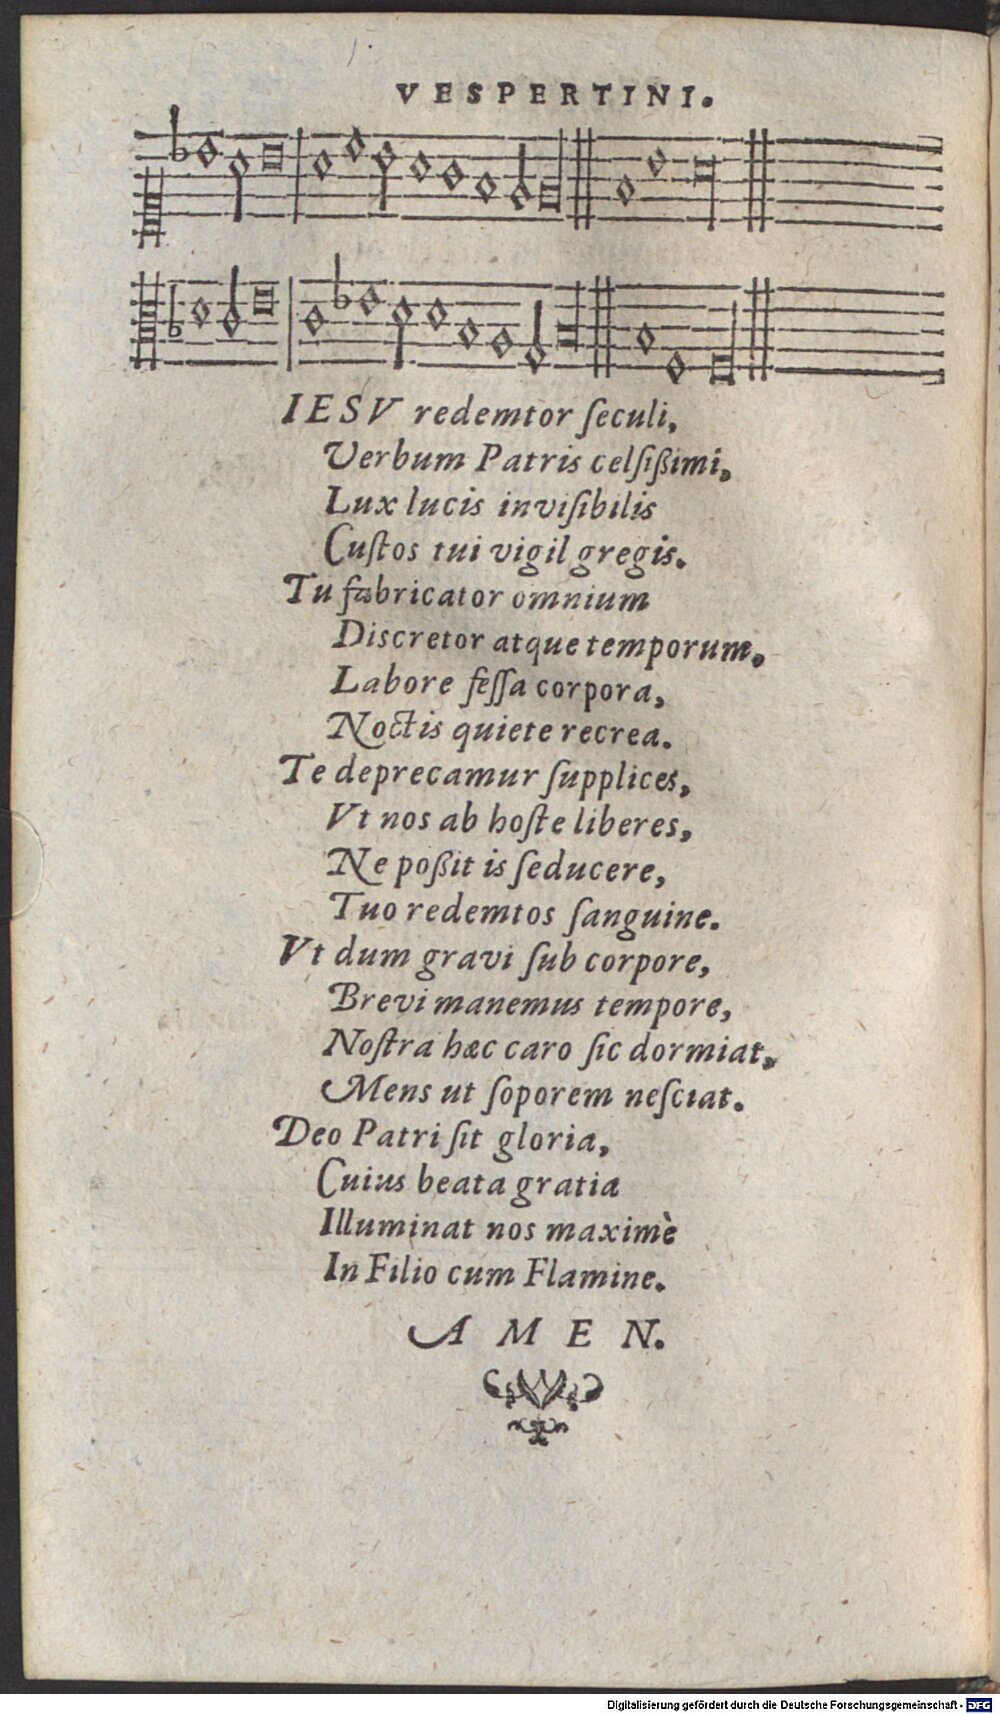 VESPERTINI.
IESV redemtor ſeculi,
Verbum Patris celſißimi,
Lux lucis inviſibilis
Cuſtos tui vigil gregis.
Tu fabricator omnium
Diſcretor atque temporum,
Labore feſſa corpora,
Noctis quiete recrea.
Te deprecamur ſupplices,
Vt nos ab hoſte liberes,
Ne poßit is ſeducere,
Tuo redemtos ſanguine.
Vt dum gravi ſub corpore,
Brevi manemus tempore,
Noſtra hæc caro ſic dormiat,
Mens ut ſoporem neſciat.
Deo Patri ſit gloria,
Cuius beata gratia
Illuminat nos maximè
In Filio cum Flamine.
A M E N.
Digitalisierung gefördert durch die Deutsche Forschungsgemeinschaft - DFG